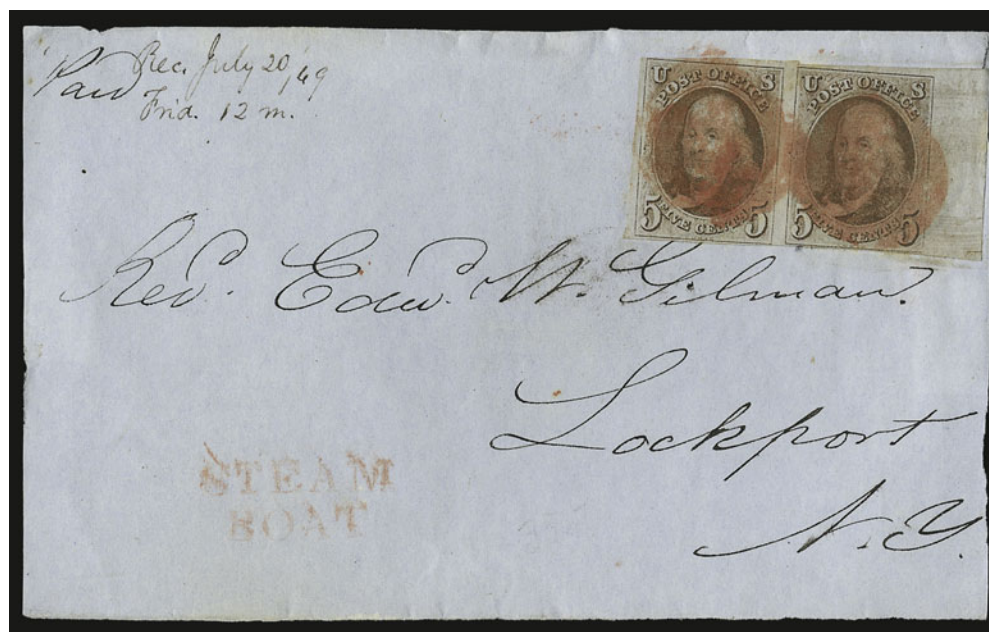 Paid Rec. July 20/49
Frid. 12 m.
U S
POST OFFICE
5 FIVE CENTS 5
U S
POST OFFICE
5 FIVE CENTS 5
Rev. Edw. W. Gilman.
Lockport
N.Y.
STEAM
BOAT